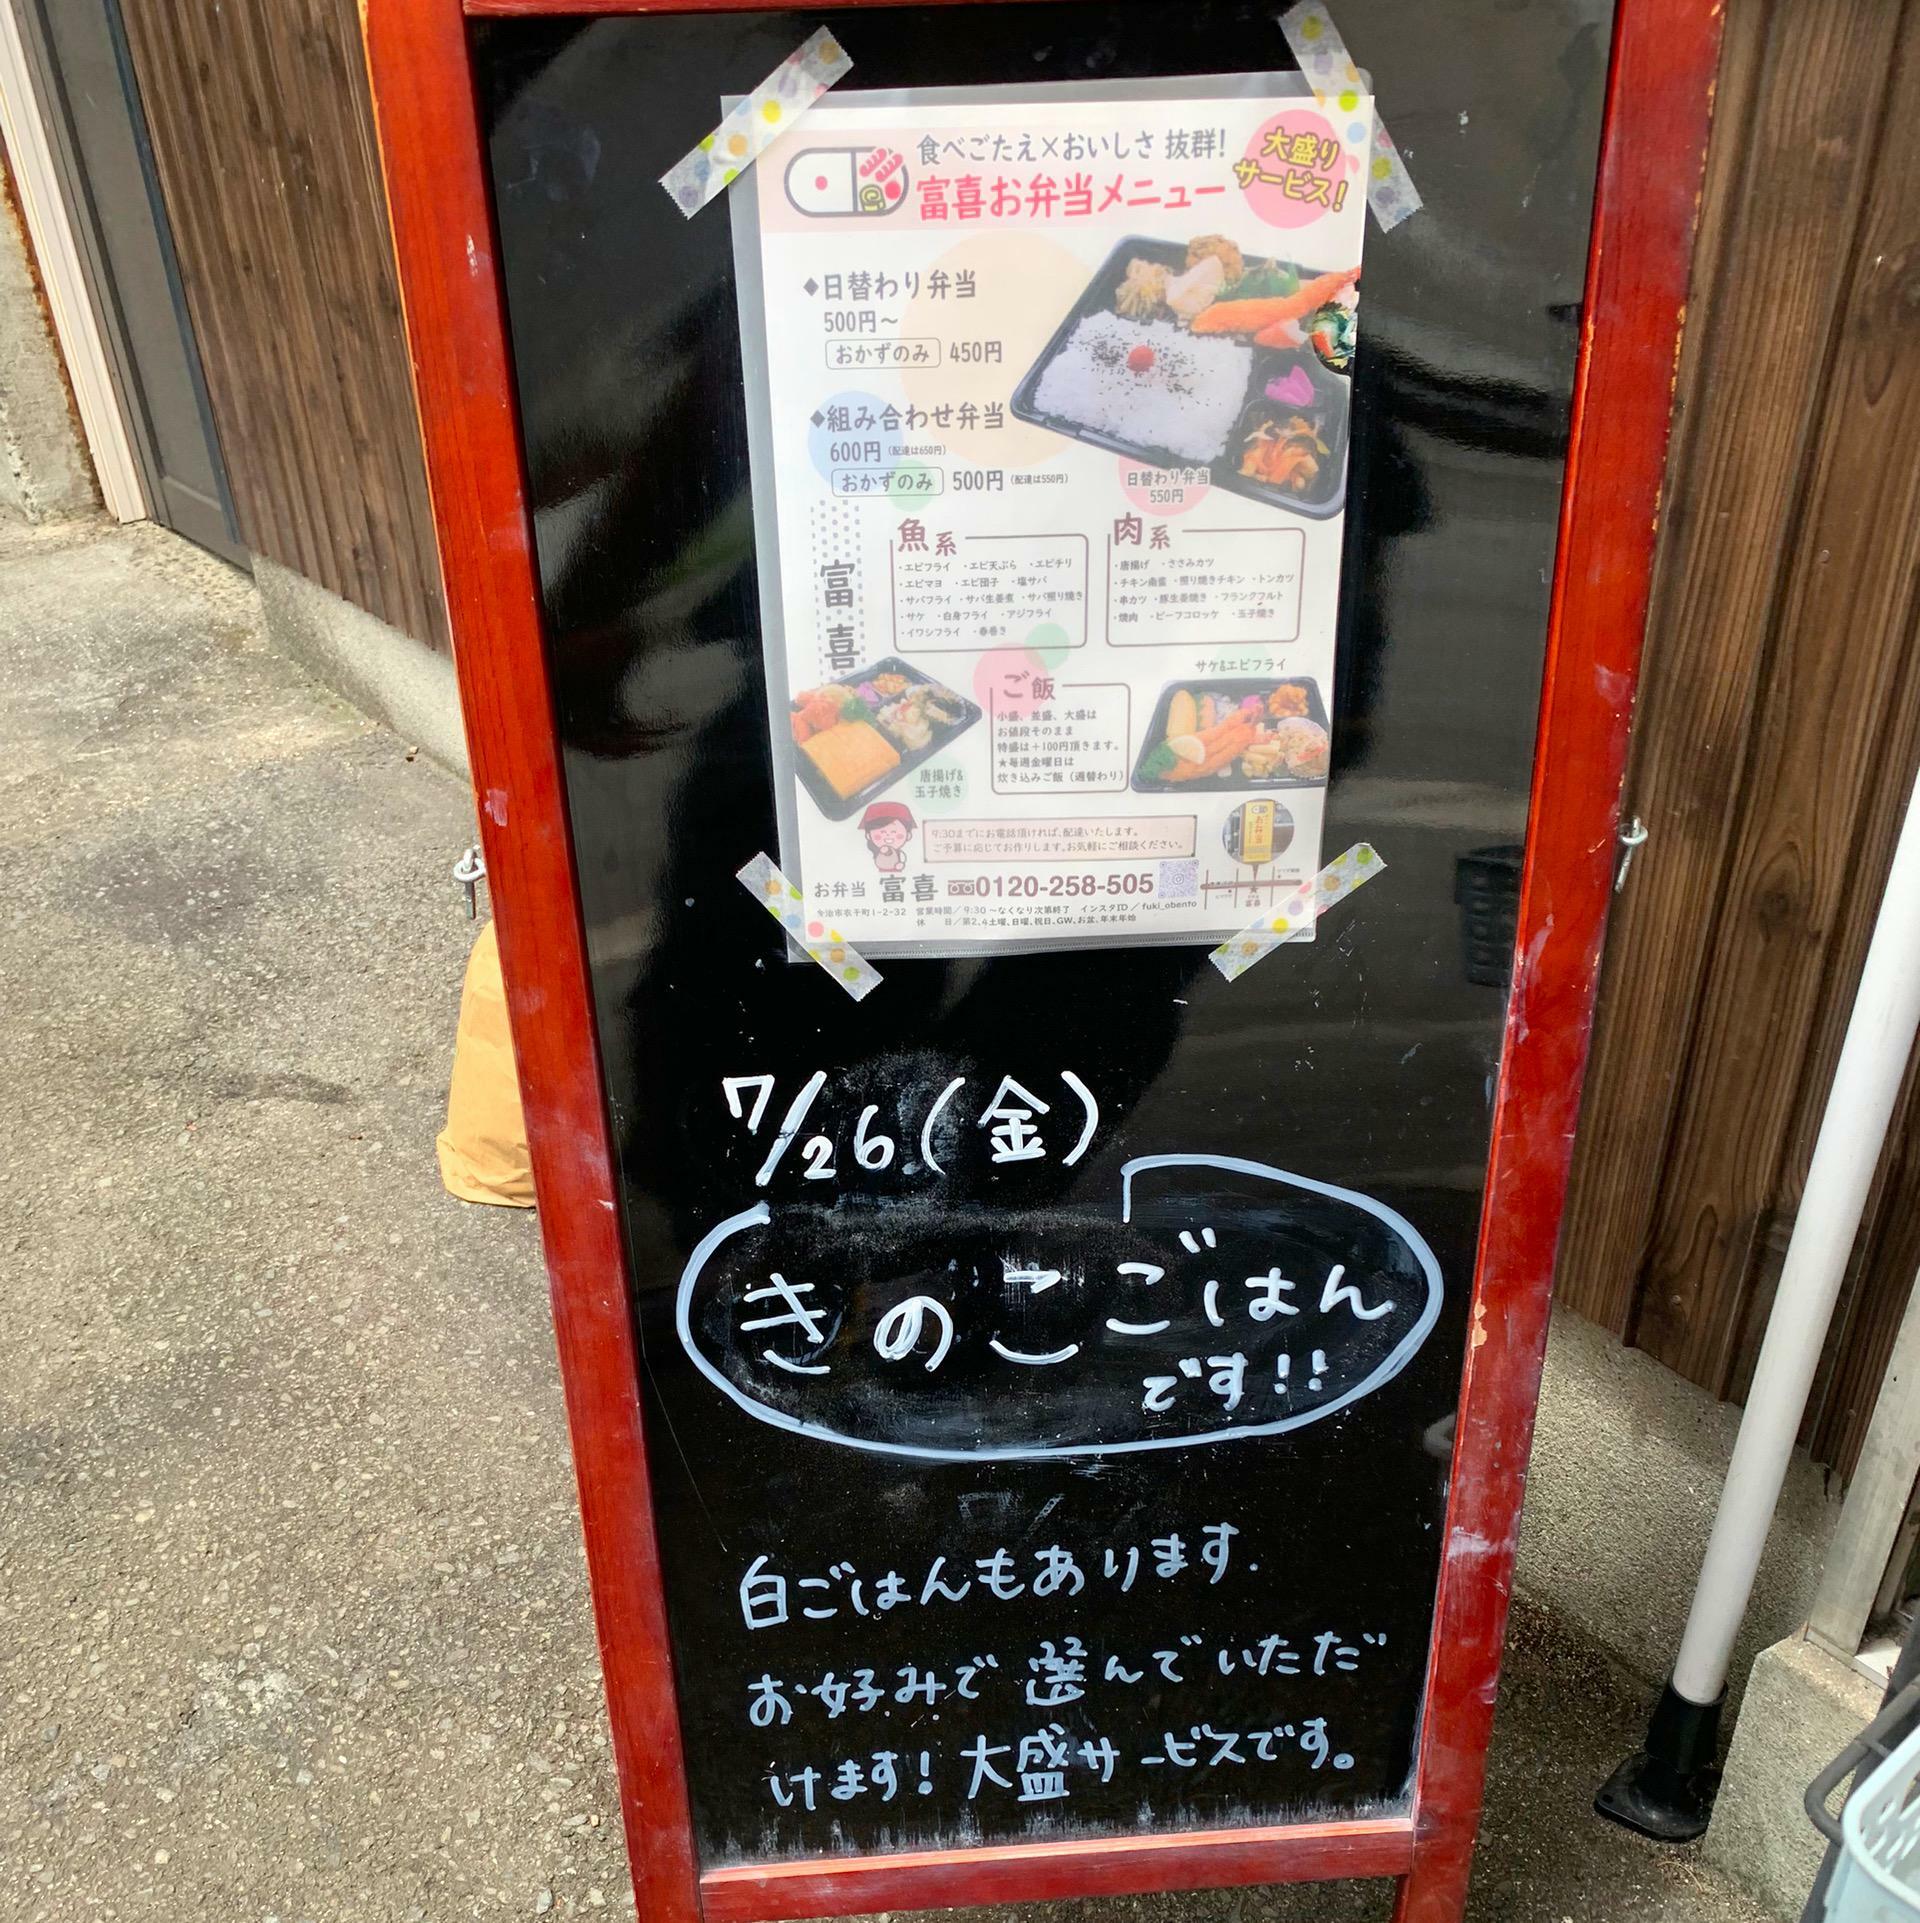 食べごたえ×おいしさ 抜群!
富喜お弁当メニュー
大盛り
サービス!
◆日替わり弁当
500円〜
おかずのみ 450円
◆組み合わせ弁当
600円(配達は650円)
おかずのみ 500円(配達は550円)
日替わり弁当
550円
富喜
魚系
・エビフライ ・エビ天ぷら ・エビチリ
・エビマヨ ・エビ団子 ・塩サバ
・サバフライ ・サバ生姜煮 ・サバ照り焼き
・サケ ・白身フライ ・アジフライ
・イワシフライ ・春巻き
肉系
・唐揚げ ・ささみカツ
・チキン南蛮 ・照り焼きチキン ・トンカツ
・串カツ ・豚生姜焼き ・フランクフルト
・焼肉 ・ビーフコロッケ ・玉子焼き
唐揚げ&
玉子焼き
ご飯
小盛、並盛、大盛は
お値段そのまま
特盛は+100円頂きます。
★毎週金曜日は
炊き込みご飯(週替わり)
サケ&エビフライ
9:30までにお電話頂ければ、配達いたします。
ご予算に応じてお作りします。お気軽にご相談ください。
お弁当 富喜 0120-258-505
今治市衣干町1-2-32 営業時間/9:30〜なくなり次第終了 インスタID/fuki_obento
休 日/第2.4土曜、日曜、祝日、GW、お盆、年末年始
お弁当
富喜
7/26(金)
きのこごはん
です!!
白ごはんもあります.
お好みで選んでいただ
けます! 大盛サービスです。